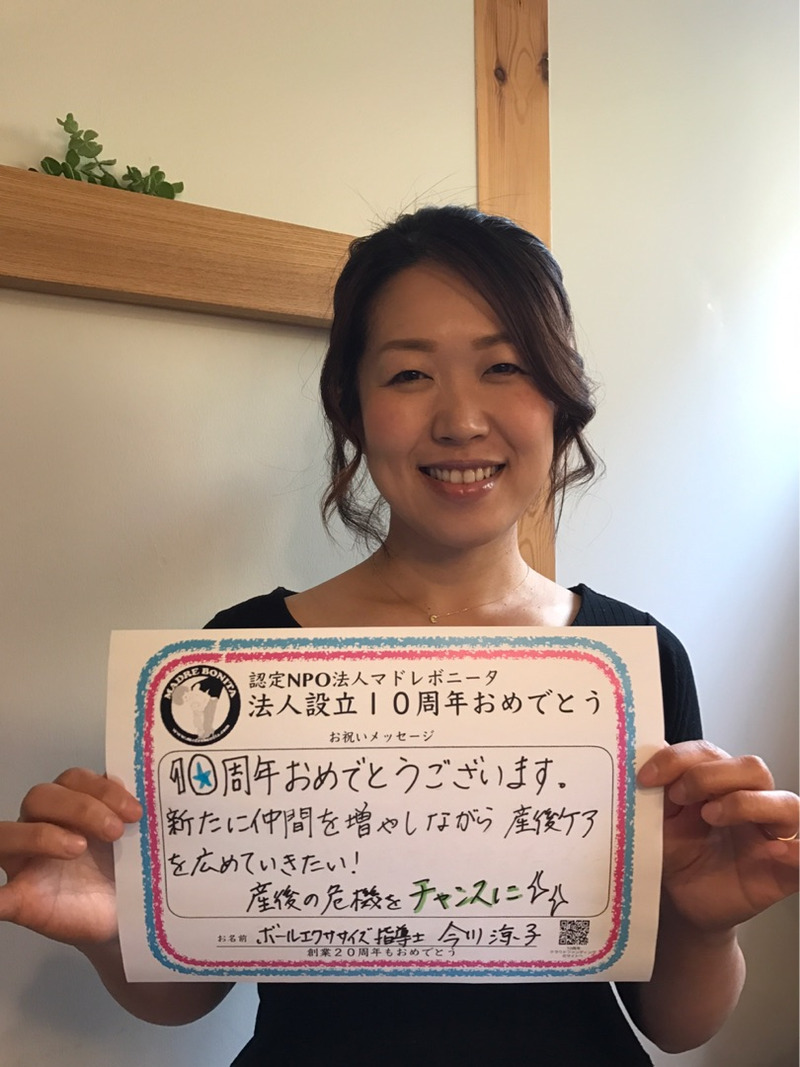 MADRE BONITA
認定NPO法人マドレボニータ
法人設立10周年おめでとう
お祝いメッセージ
10周年おめでとうございます。
新たに仲間を増やしながら 産後ケア
を広めていきたい!
産後の危機をチャンスに
お名前 ボールエクササイズ指導士 今川 涼子
創業20周年もおめでとう